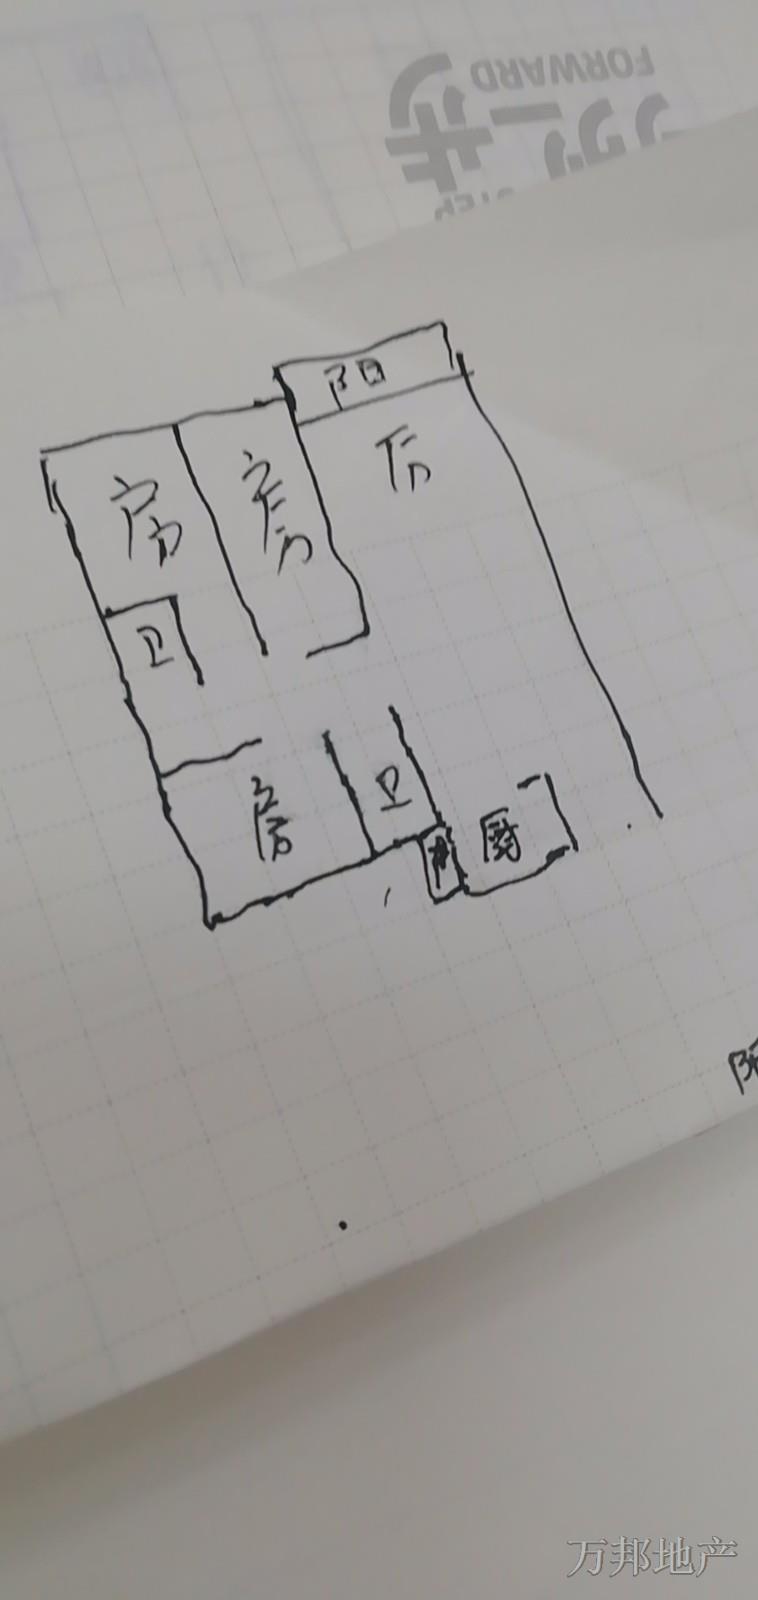 FORWARD
步一
STEP
阳
房
房
厅
卫
房
卫
厨
阳
万邦地产